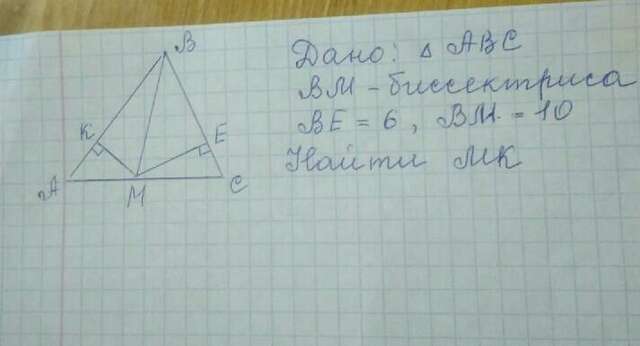 B
Дано: △ ABC
BM - биссектриса
BE = 6, BM = 10
K
E
Найти MK
A
M
C